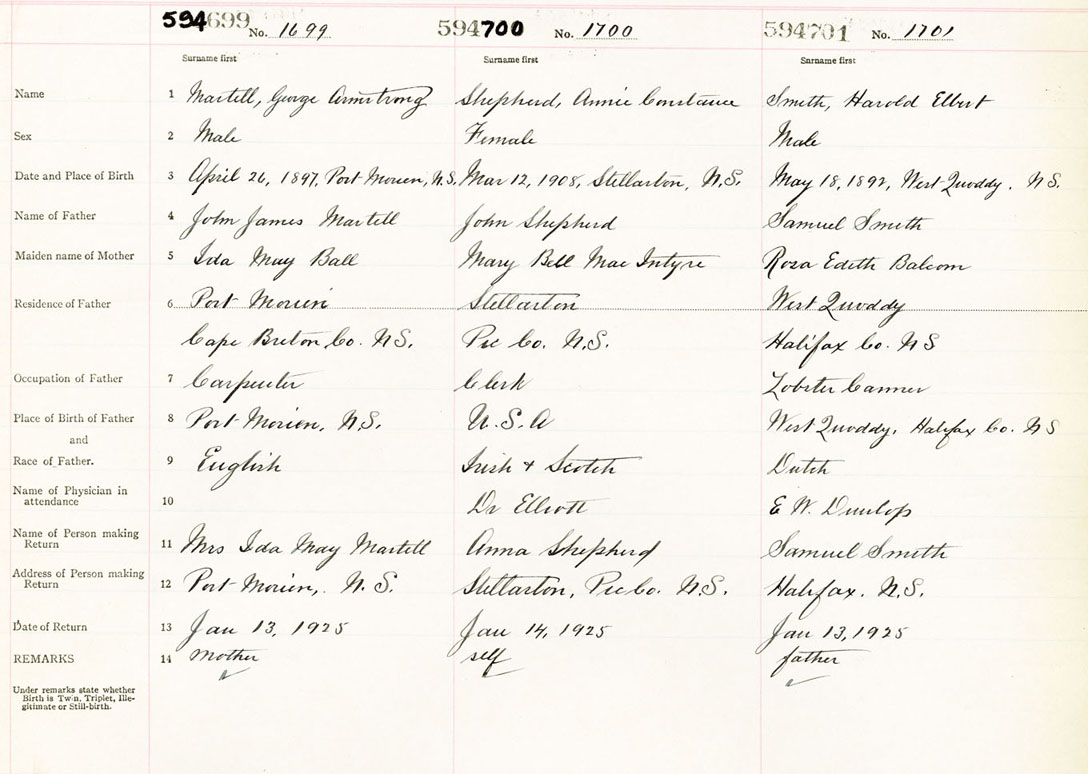 594699 No. 1699 594700 No. 1700 594701 No. 1701
Surname first Surname first Surname first
Name 1 Martell, George Armstrong Shepherd, Annie Constance Smith, Harold Elbert
Sex 2 Male Female Male
Date and Place of Birth 3 April 26, 1897, Port Morien, N.S. Mar 12, 1908, Stellarton, N.S. May 18, 1892, West Quoddy. N.S.
Name of Father 4 John James Martell John Shepherd Samuel Smith
Maiden name of Mother 5 Ida May Ball Mary Bell Mac Intyre Rosa Edith Balcom
Residence of Father 6 Port Morien Stellarton West Quoddy
Cape Breton Co. N.S. Pic Co. N.S. Halifax Co. N S
Occupation of Father 7 Carpenter Clerk Lobster Canner
Place of Birth of Father 8 Port Morien, N.S. U.S.A West Quoddy, Halifax Co. N S
and
Race of Father. 9 English Irish + Scotch Dutch
Name of Physician in
attendance 10 Dr Elliott E W. Dunlop
Name of Person making
Return 11 Mrs Ida May Martell Anna Shepherd Samuel Smith
Address of Person making
Return 12 Port Morien, N.S. Stellarton, Pic Co. N.S. Halifax. N.S.
Date of Return 13 Jan 13, 1925 Jan 14, 1925 Jan 13, 1925
REMARKS 14 mother self father
Under remarks state whether
Birth is Twin, Triplet, Ille-
gitimate or Still-birth.